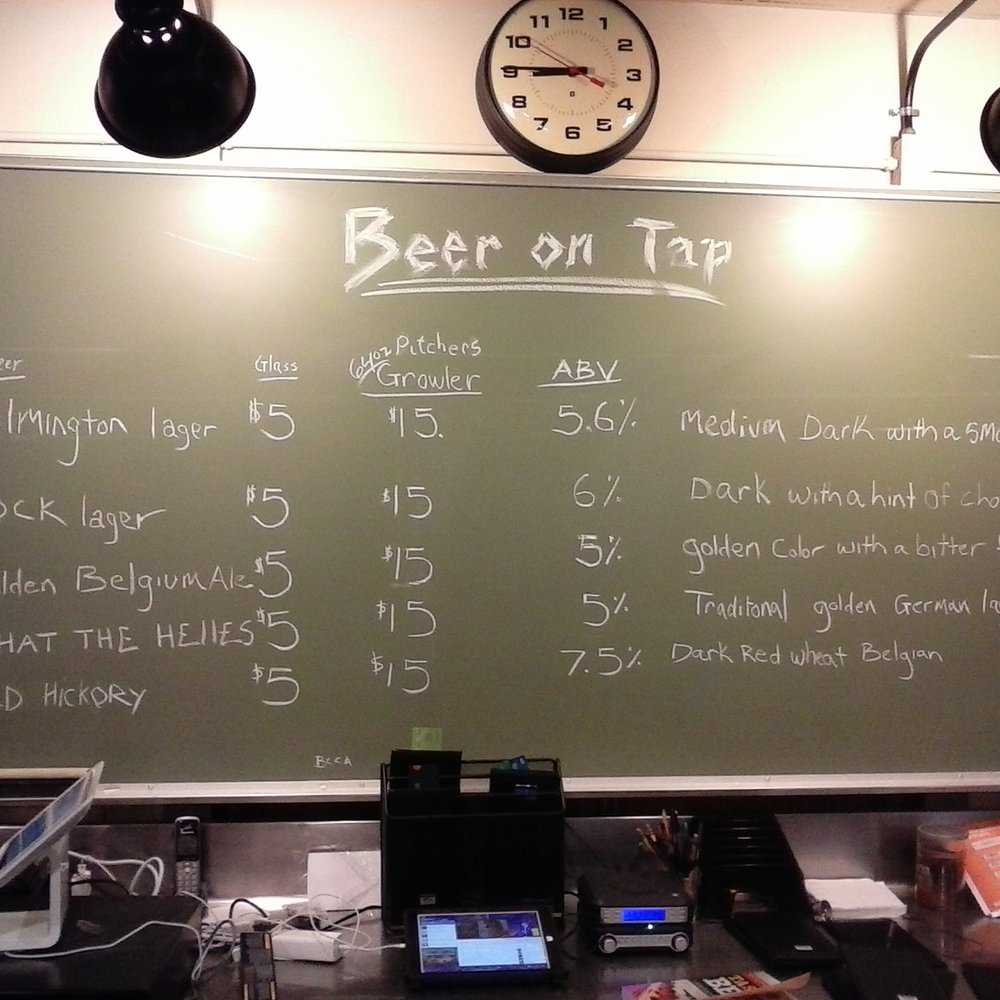 11 12 1
10 2
9 3
8 4
7 6 5
Beer on Tap
Glass 64oz Pitchers Growler ABV
lmington lager $5 $15. 5.6% Medium Dark with a
ock lager $5 $15 6% Dark with a hint of
lden Belgium Ale $5 $15 5% golden Color with a bitter
HAT THE HEllES $5 $15 5% Traditonal golden German
D HICKORY $5 $15 7.5% Dark Red wheat Belgian
BCCA